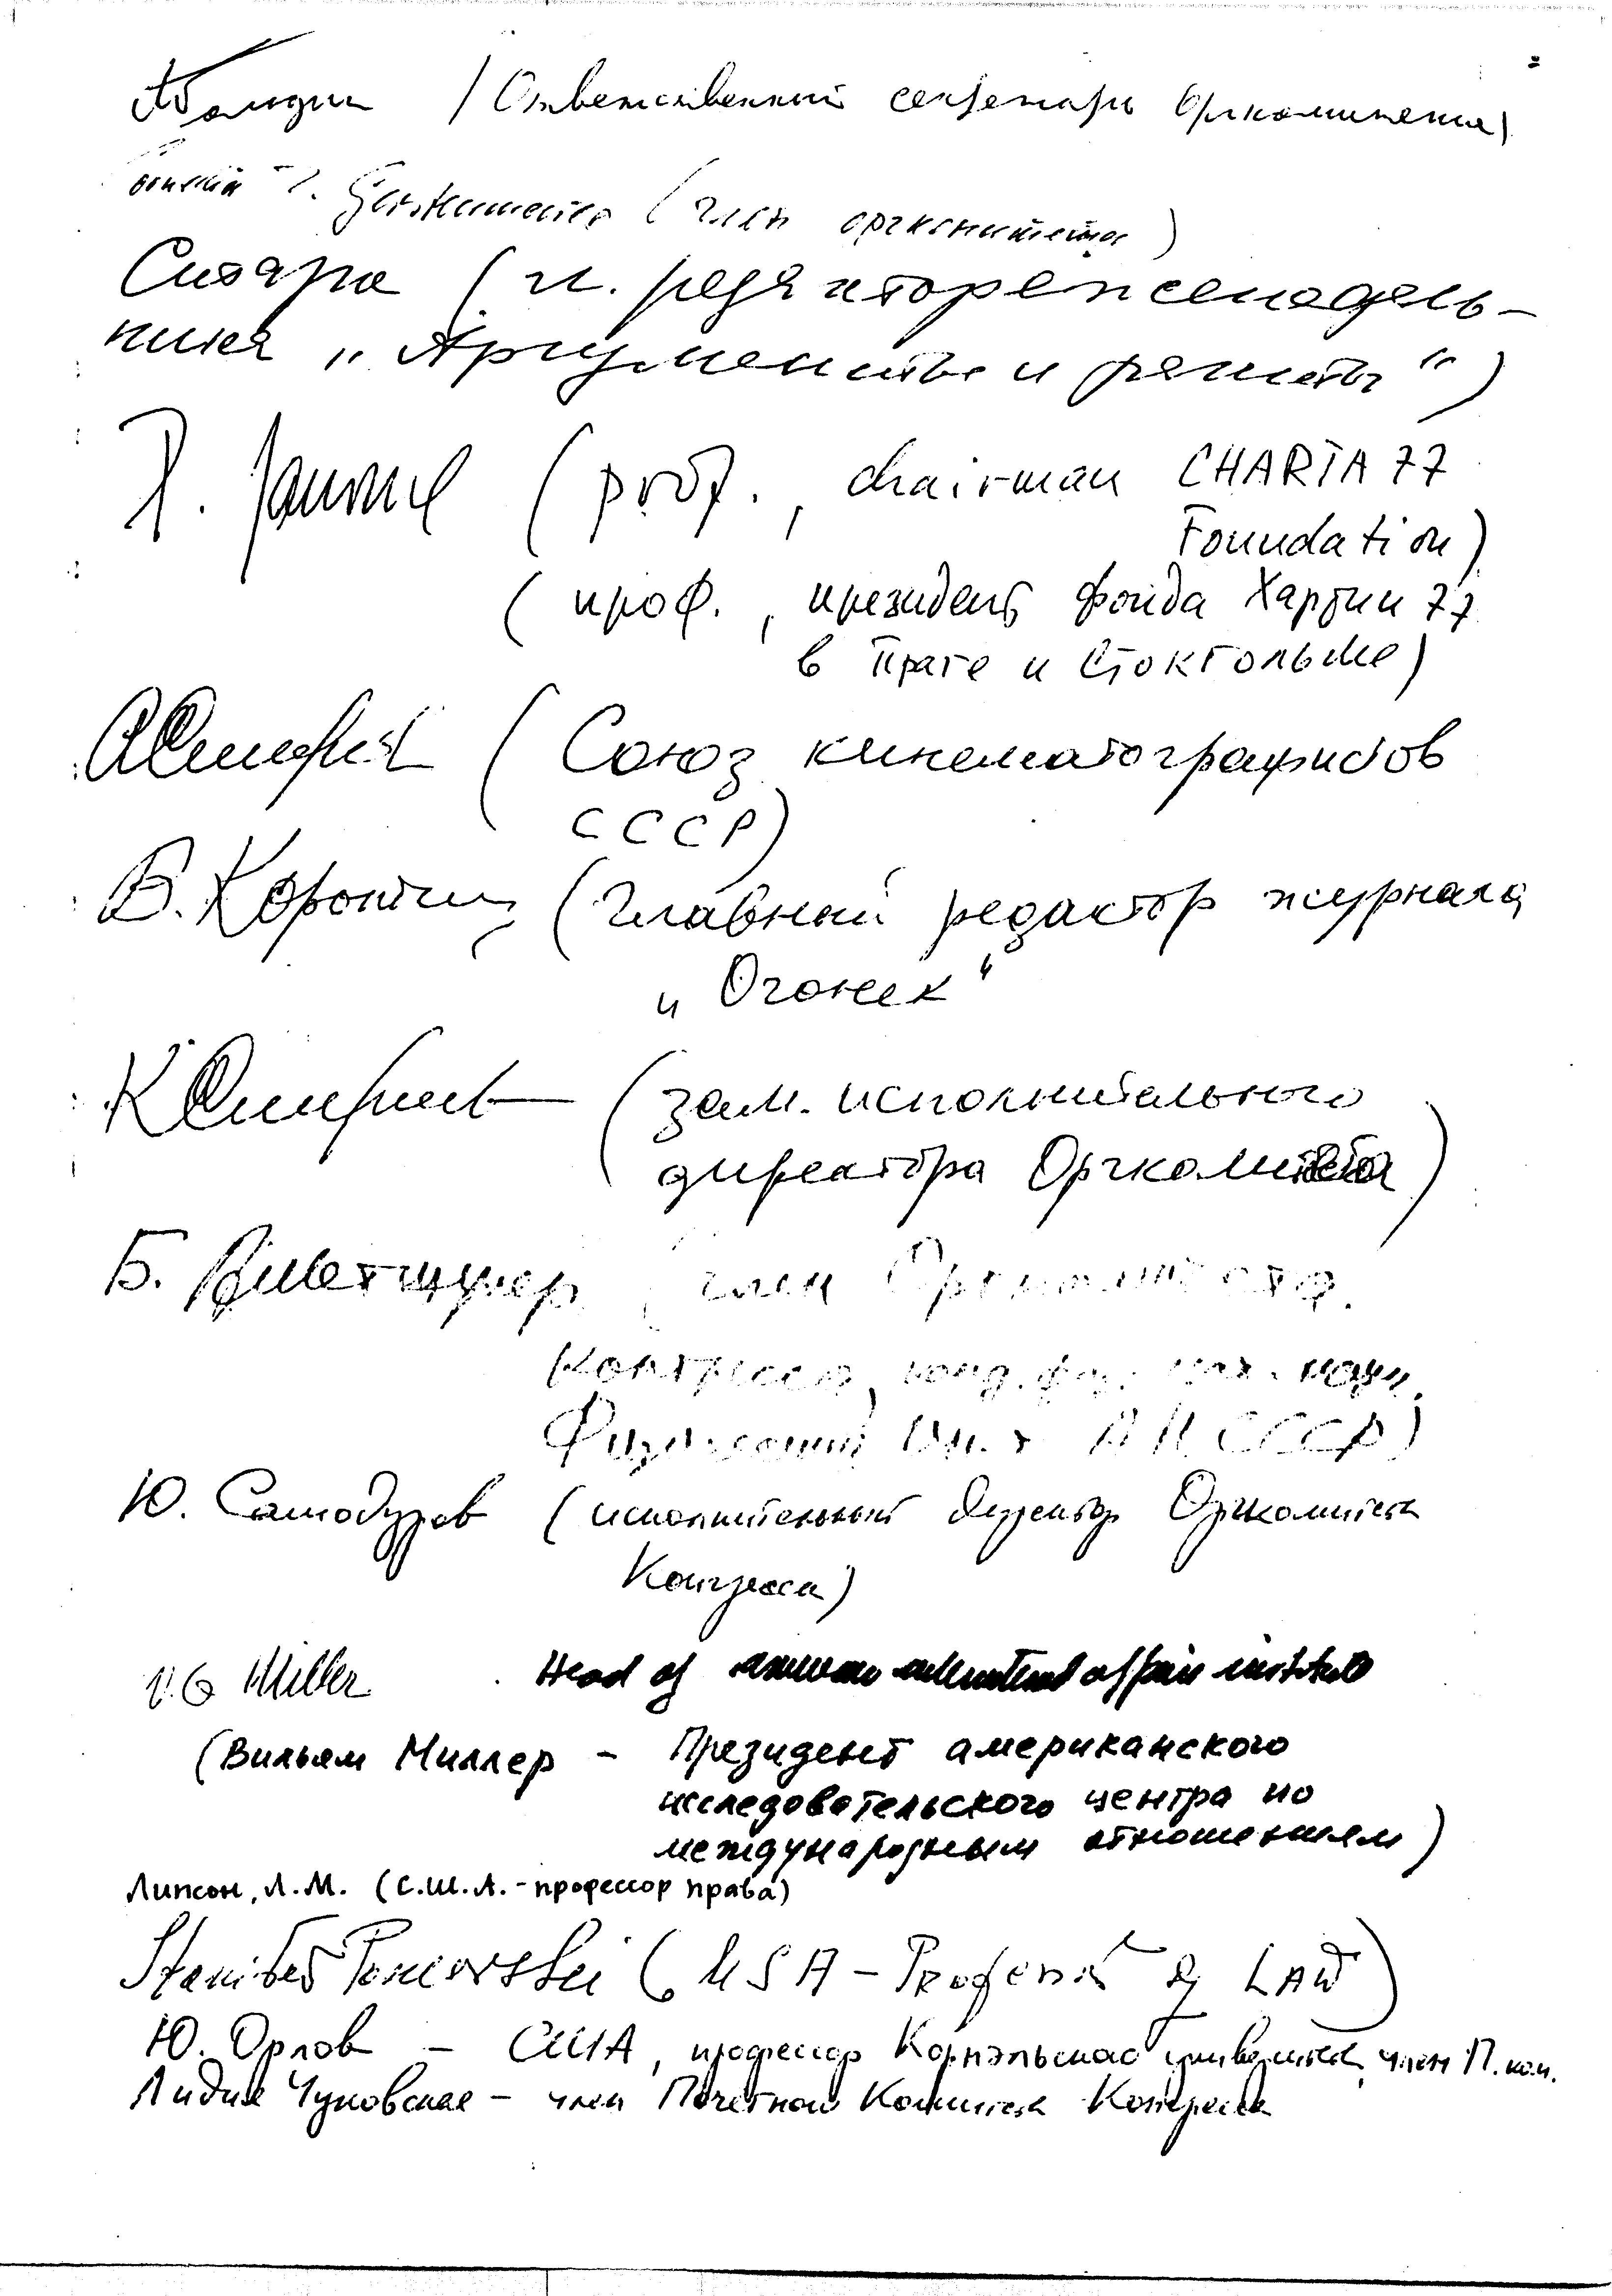 (Ответственный секретарь Оргкомитета)
(член оргкомитета)
(гл. редактор еженедель-
ника „Аргументы и факты“)
(prof., chairman CHARTA 77
Foundation)
(проф., президент фонда Хартии 77
в Праге и Стокгольме)
(Союз кинематографистов
СССР)
В. Коротич (главный редактор журнала
„Огонек“
(зам. исполнительного
директора Оргкомитета)
Б. член Оргкомитета
Конгресса, канд. физ. мат. наук,
Физический Ин-т АН СССР)
Ю. Самодуров (исполнительный директор Оргкомитета
Конгресса)
Miller Head of affair institute
(Вильям Миллер - Президент американского
исследовательского центра по
международным отношениям)
Липсон, Л.М. (С.Ш.А. - профессор права)
Pomorski (USA - Professor of LAW)
Ю. Орлов - США, профессор Корнэльского университета, член П. ком.
Лидия Чуковская - член Почетного Комитета Конгресса